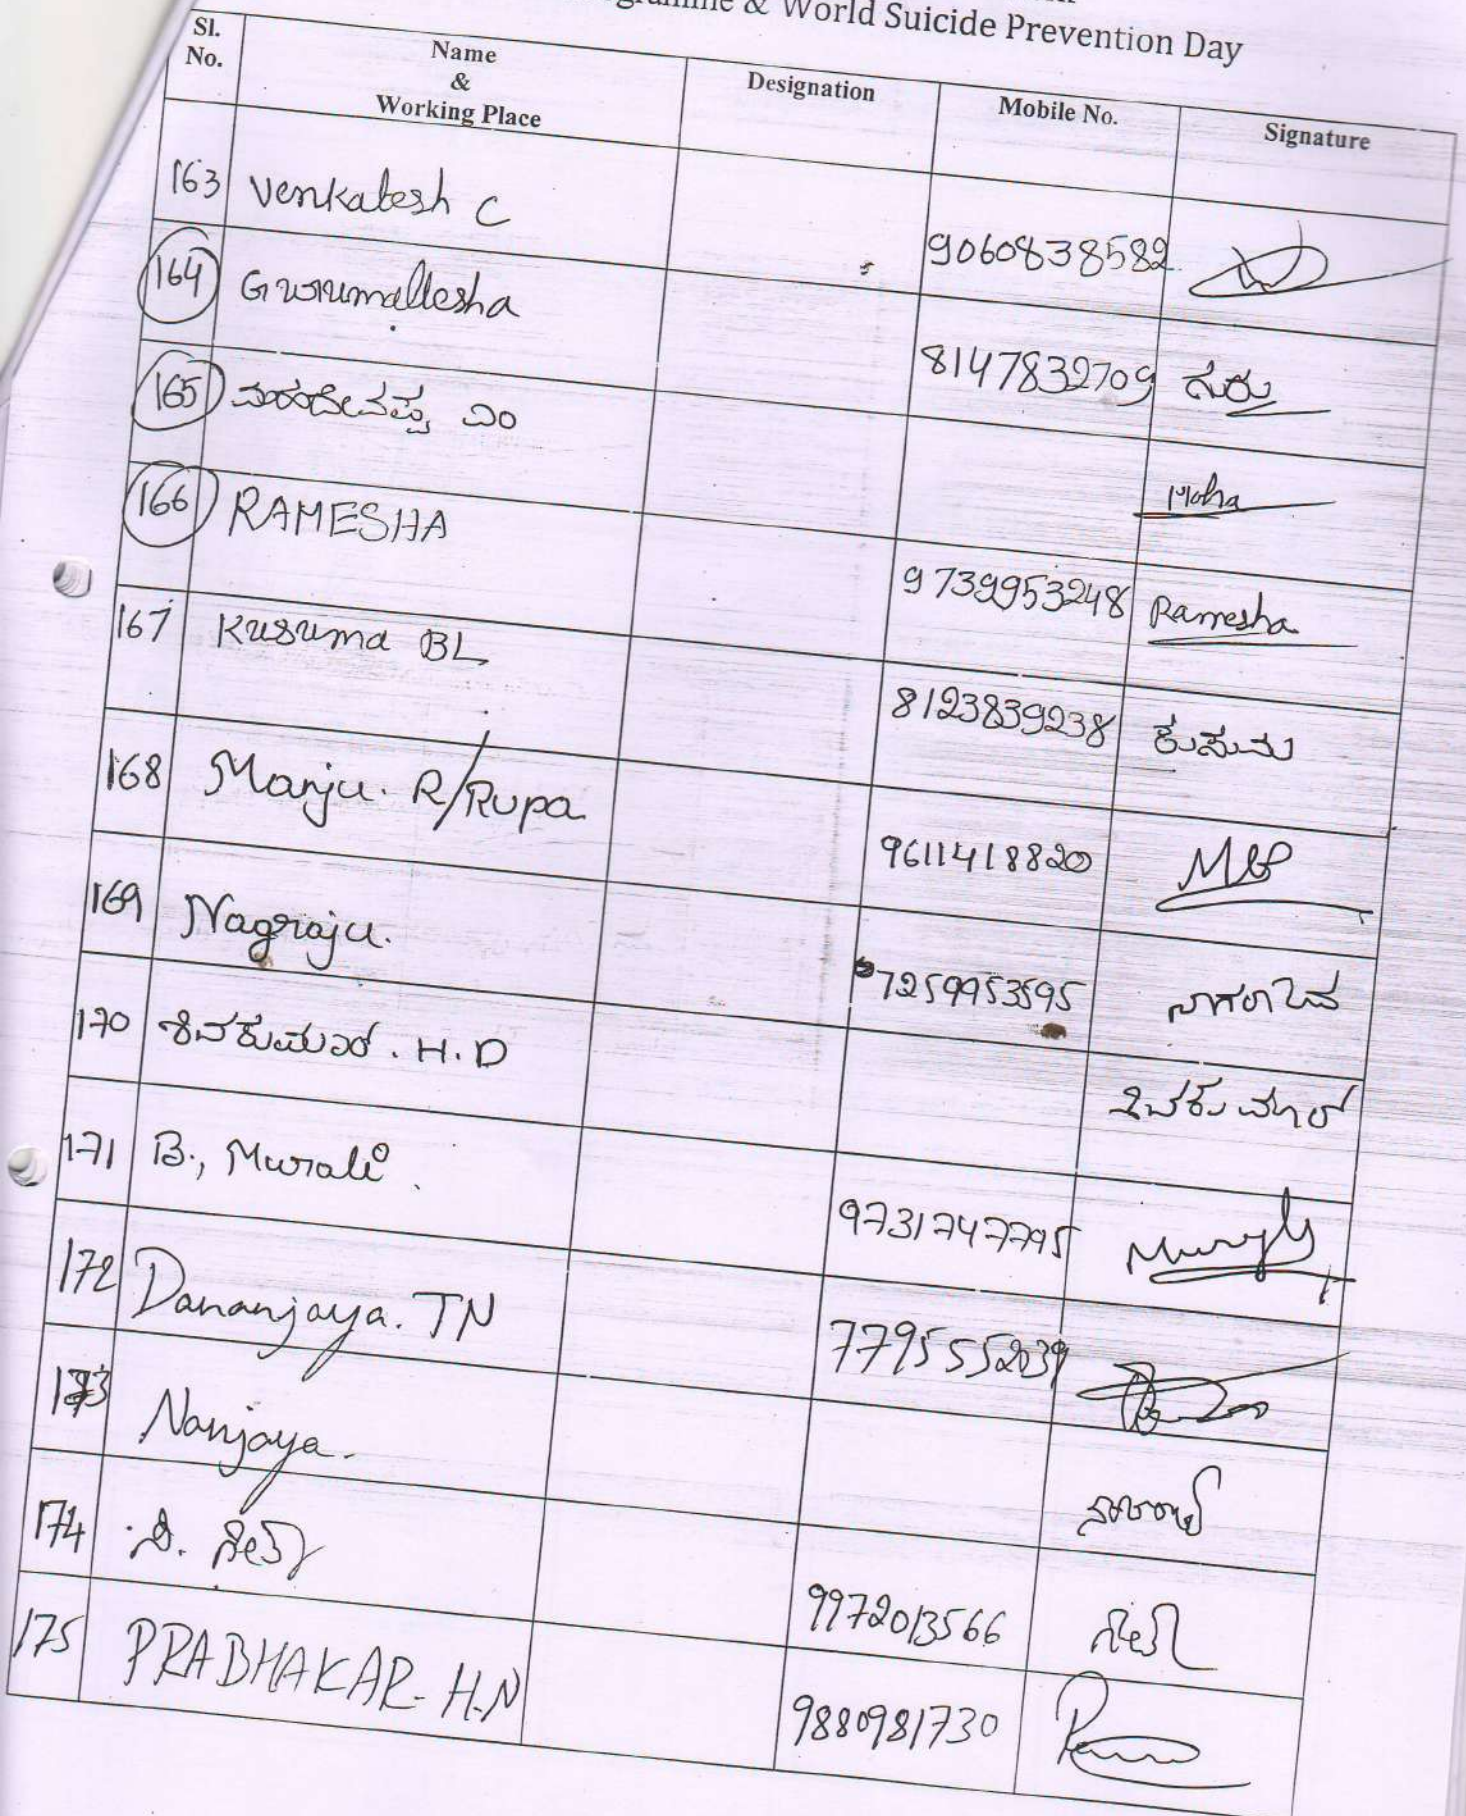 & World Suicide Prevention Day
Sl. No. Name & Working Place Designation Mobile No. Signature
163 Venkatesh C 9060838582
164 Gurumallesha 8147832709 ಗುರು
165 ಮಹದೇವಪ್ಪ ಎಂ Maha
166 RAMESHA 9739953248 Ramesha
167 Kusuma BL 8123839238 ಕುಸುಮ
168 Manju. R/Rupa 9611418820
169 Nagraju. 7259953595 ನಾಗರಾಜು
170 ಶಿವಕುಮಾರ್. H.D ಶಿವಕುಮಾರ್
171 B., Murali. 9731747795
172 Dananjaya. TN 7795552039
173 Nanjaya.
174 9972013566
175 PRABHAKAR. H.N 9880981730